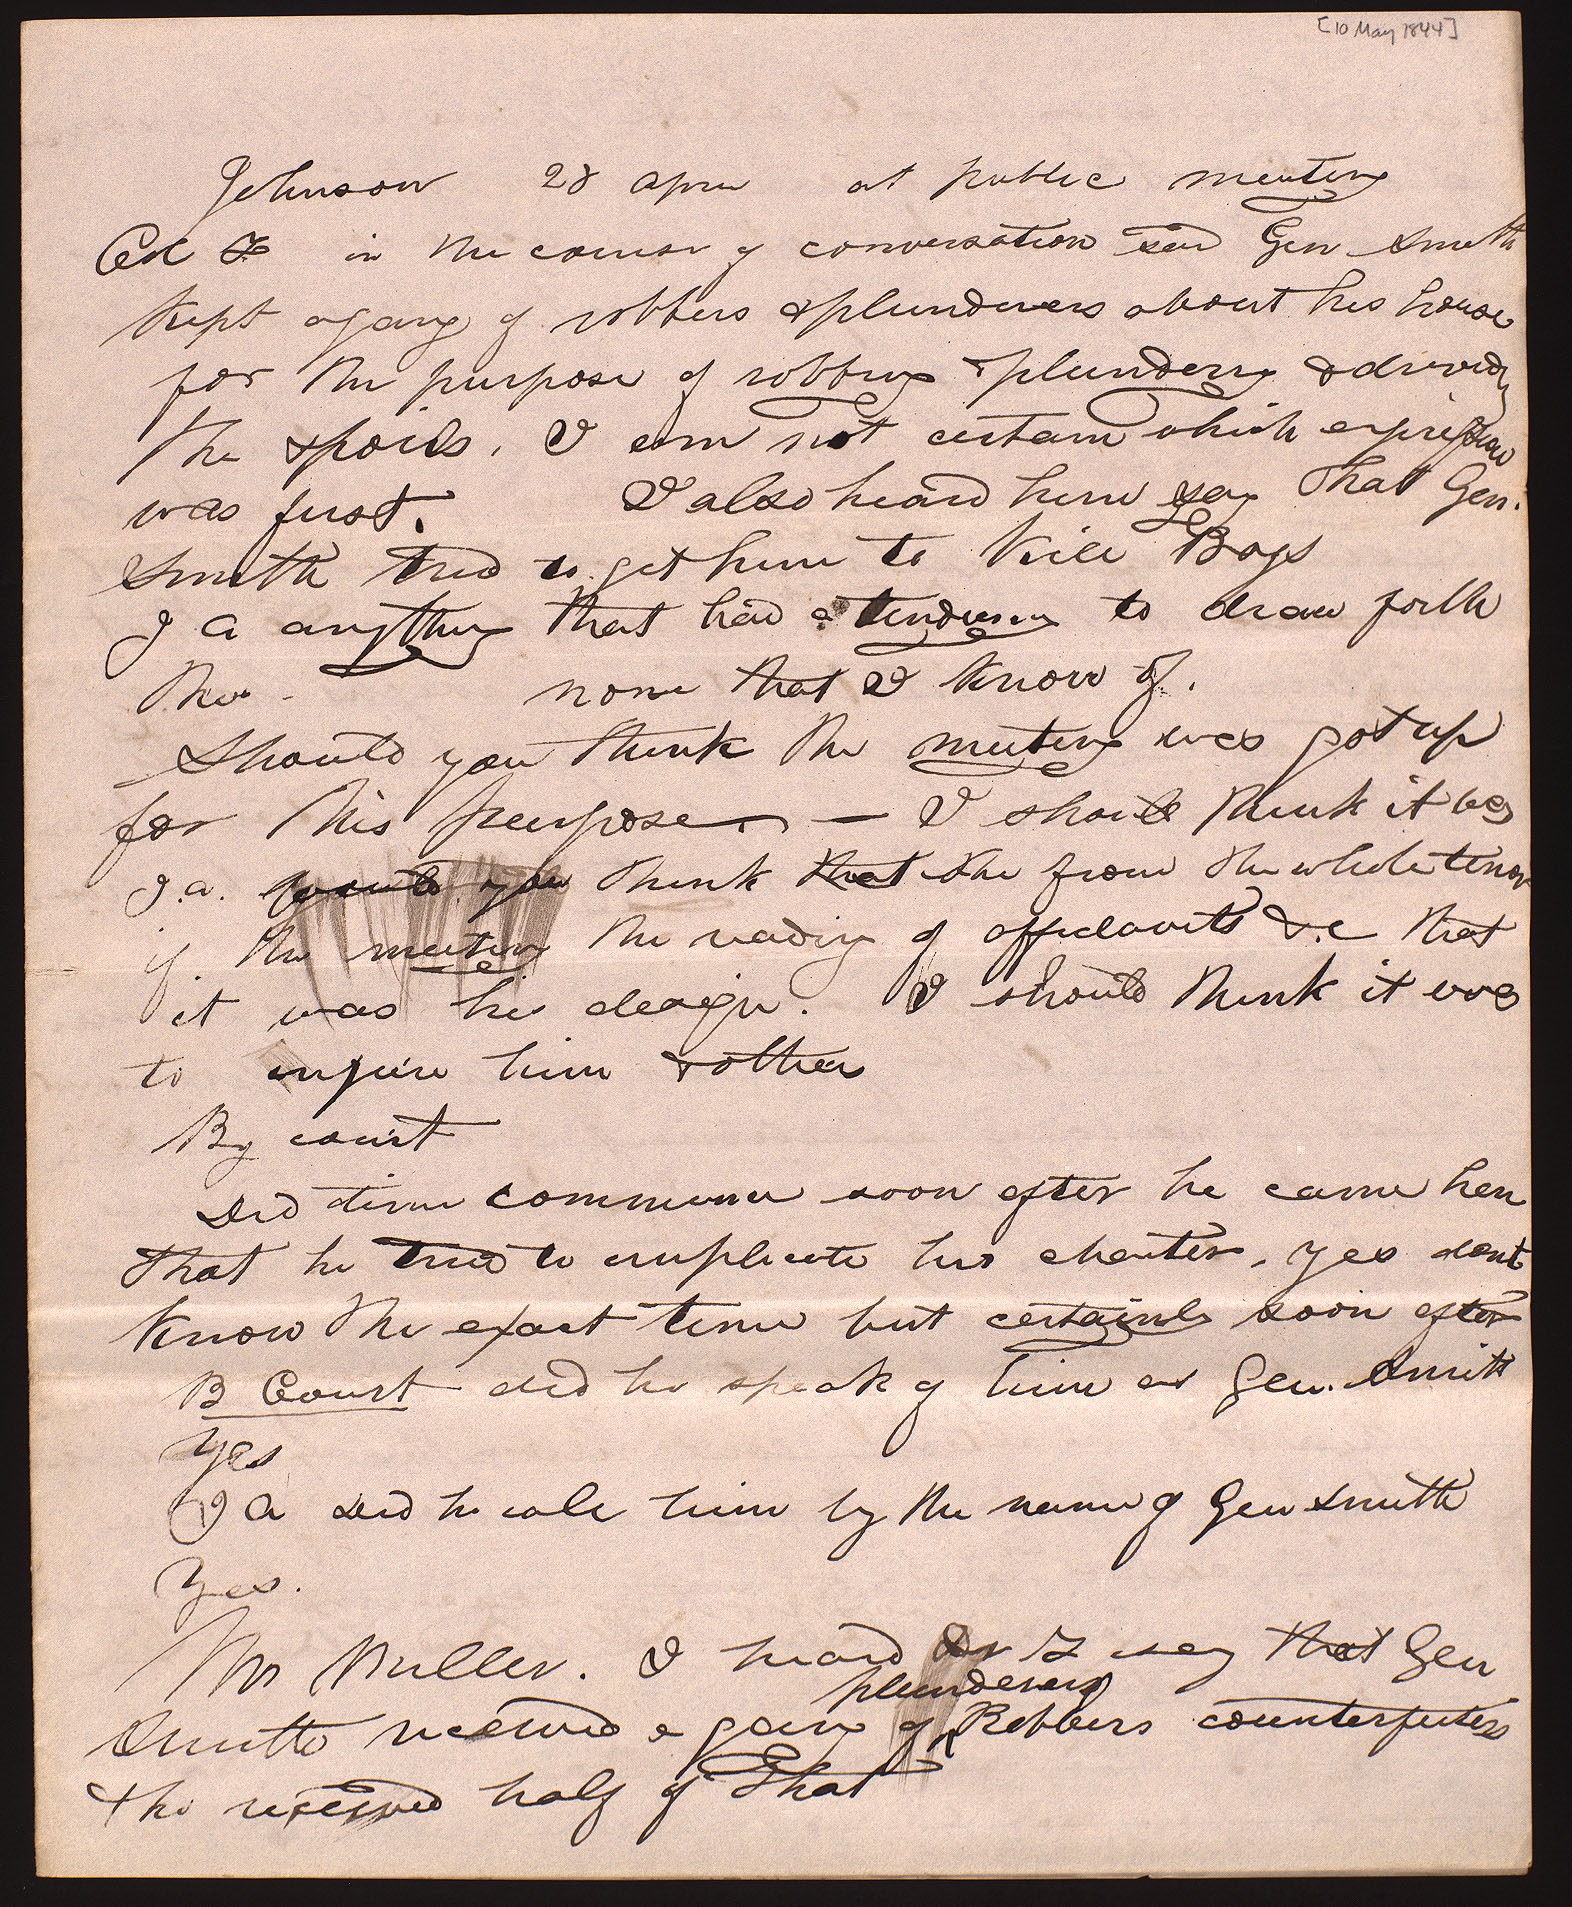 [10 May 1844]
Johnson 28 April at public meeting
in the course of conversation said Gen Smith
kept a gang of robbers & plunderers about his house
for the purpose of robbing & plundering & dividing
the spoils. I am not certain which expression
was first. I also heard him say that Gen.
Smith tried to get him to kill Bogs
J a anything that had a tendency to draw forth
this - none that I know of.
should you think the meeting was got up
for this purpose — I should think it was
J.a. would you think that the from the whole tenor
of the meeting the reading of affidavits &c that
it was his design. I should think it was
to injure him & others
By court
Did time commence soon after he came here
that he tried to implicate his character, yes dont
know the exact time but certainly soon after
B Court did he speak of him as Gen. Smith
Yes
J a Did he call him by the name of Gen Smith
Yes.
Mr Miller. I heard Dr F say that Gen
plunderers
Smith received a gang of Robbers counterfeiters
& he received half of that